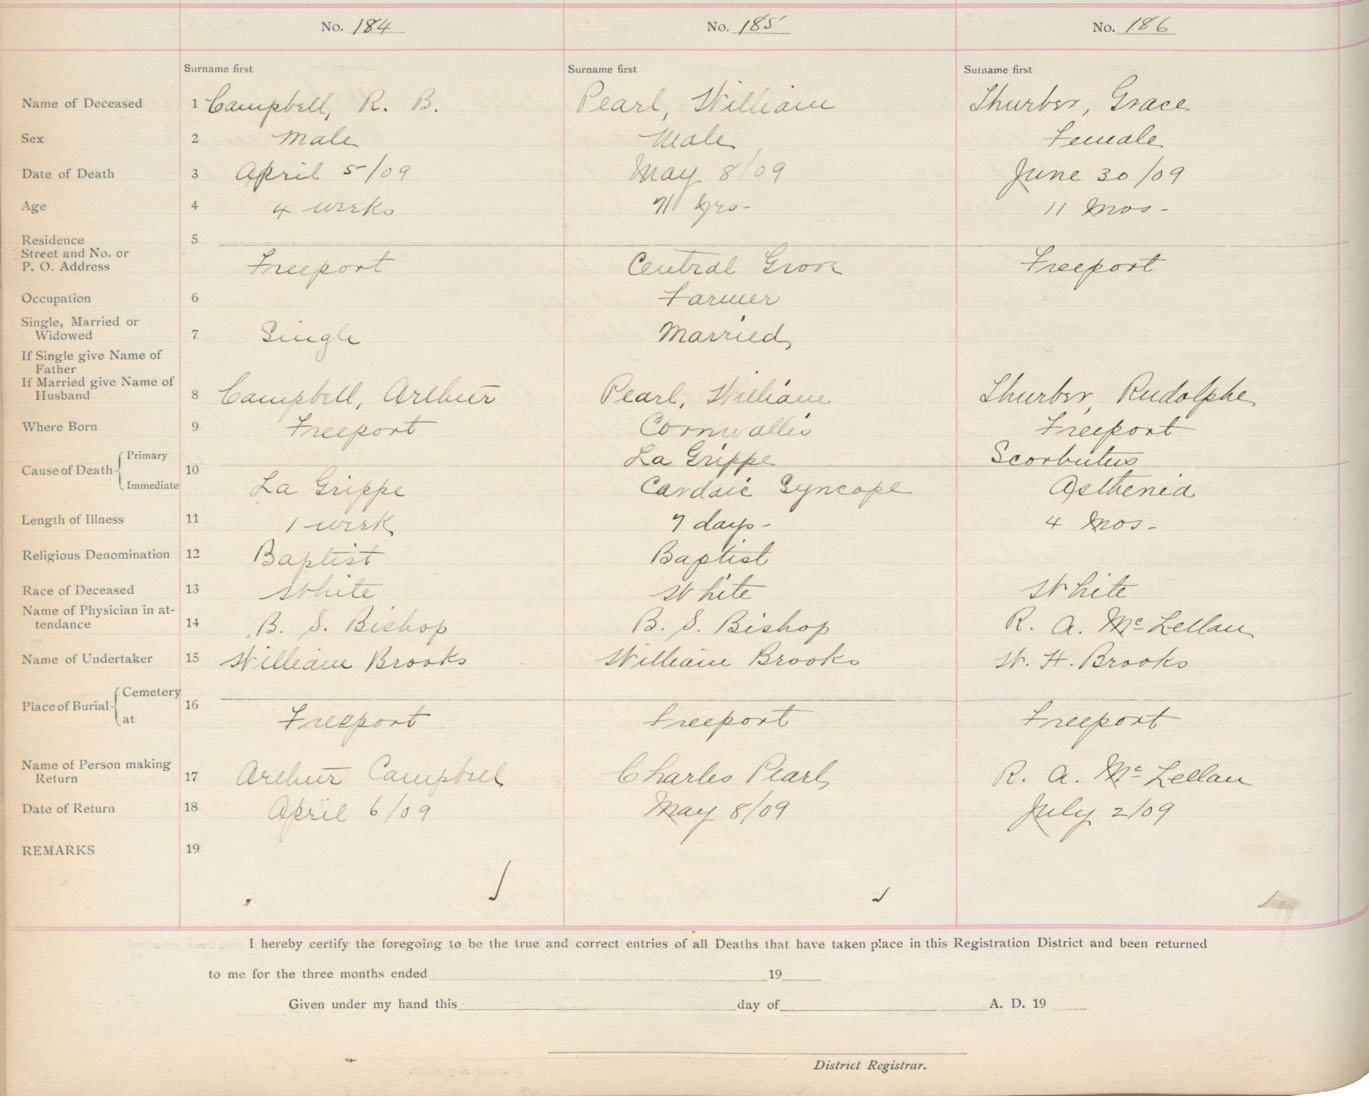 No. 184 No. 185 No. 186
Surname first Surname first Surname first
Name of Deceased 1 Campbell, R. B. Pearl, William Thurber, Grace
Sex 2 Male Male Female
Date of Death 3 April 5/09 May 8/09 June 30/09
Age 4 4 weeks 71 yrs- 11 Mos-
Residence 5
Street and No. or
P. O. Address Freeport Central Grove Freeport
Occupation 6 Farmer
Single, Married or
Widowed 7 Single Married
If Single give Name of
Father
If Married give Name of
Husband 8 Campbell, Arthur Pearl, William Thurber, Rudolphe
Where Born 9 Freeport Cornwallis Freeport
Primary La Grippe Scorbutus
Cause of Death 10
Immediate La Grippe Cardaic Syncope Asthenia
Length of Illness 11 1 week 7 days- 4 Mos-
Religious Denomination 12 Baptist Baptist
Race of Deceased 13 White White White
Name of Physician in at-
tendance 14 B. S. Bishop B. S. Bishop R. A. McLellan
Name of Undertaker 15 William Brooks William Brooks W. H. Brooks
Cemetery
Place of Burial 16
at Freeport Freeport Freeport
Name of Person making
Return 17 Arthur Campbell Charles Pearl R. A. McLellan
Date of Return 18 April 6/09 May 8/09 July 2/09
REMARKS 19
I hereby certify the foregoing to be the true and correct entries of all Deaths that have taken place in this Registration District and been returned
to me for the three months ended 19
Given under my hand this day of A. D. 19
District Registrar.